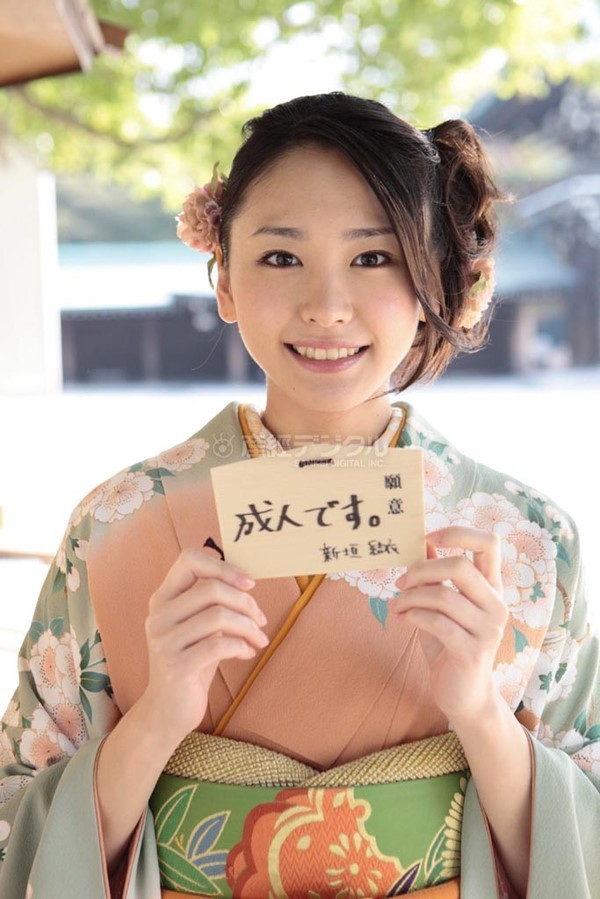 産経デジタル
SANKEI DIGITAL INC.
願意
成人です。
新垣 結衣